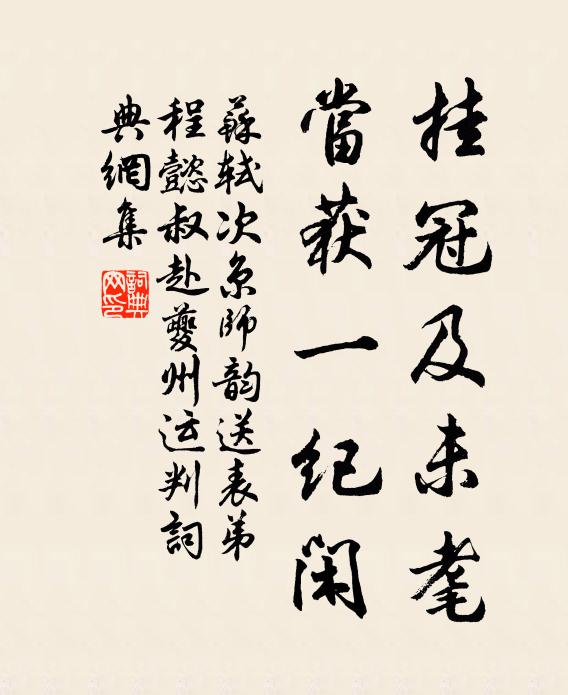 挂冠及未耄
當获一纪闲
蘇轼次京師韵送表弟
程懿叔赴夔州运判詞
典網集
詞典网印